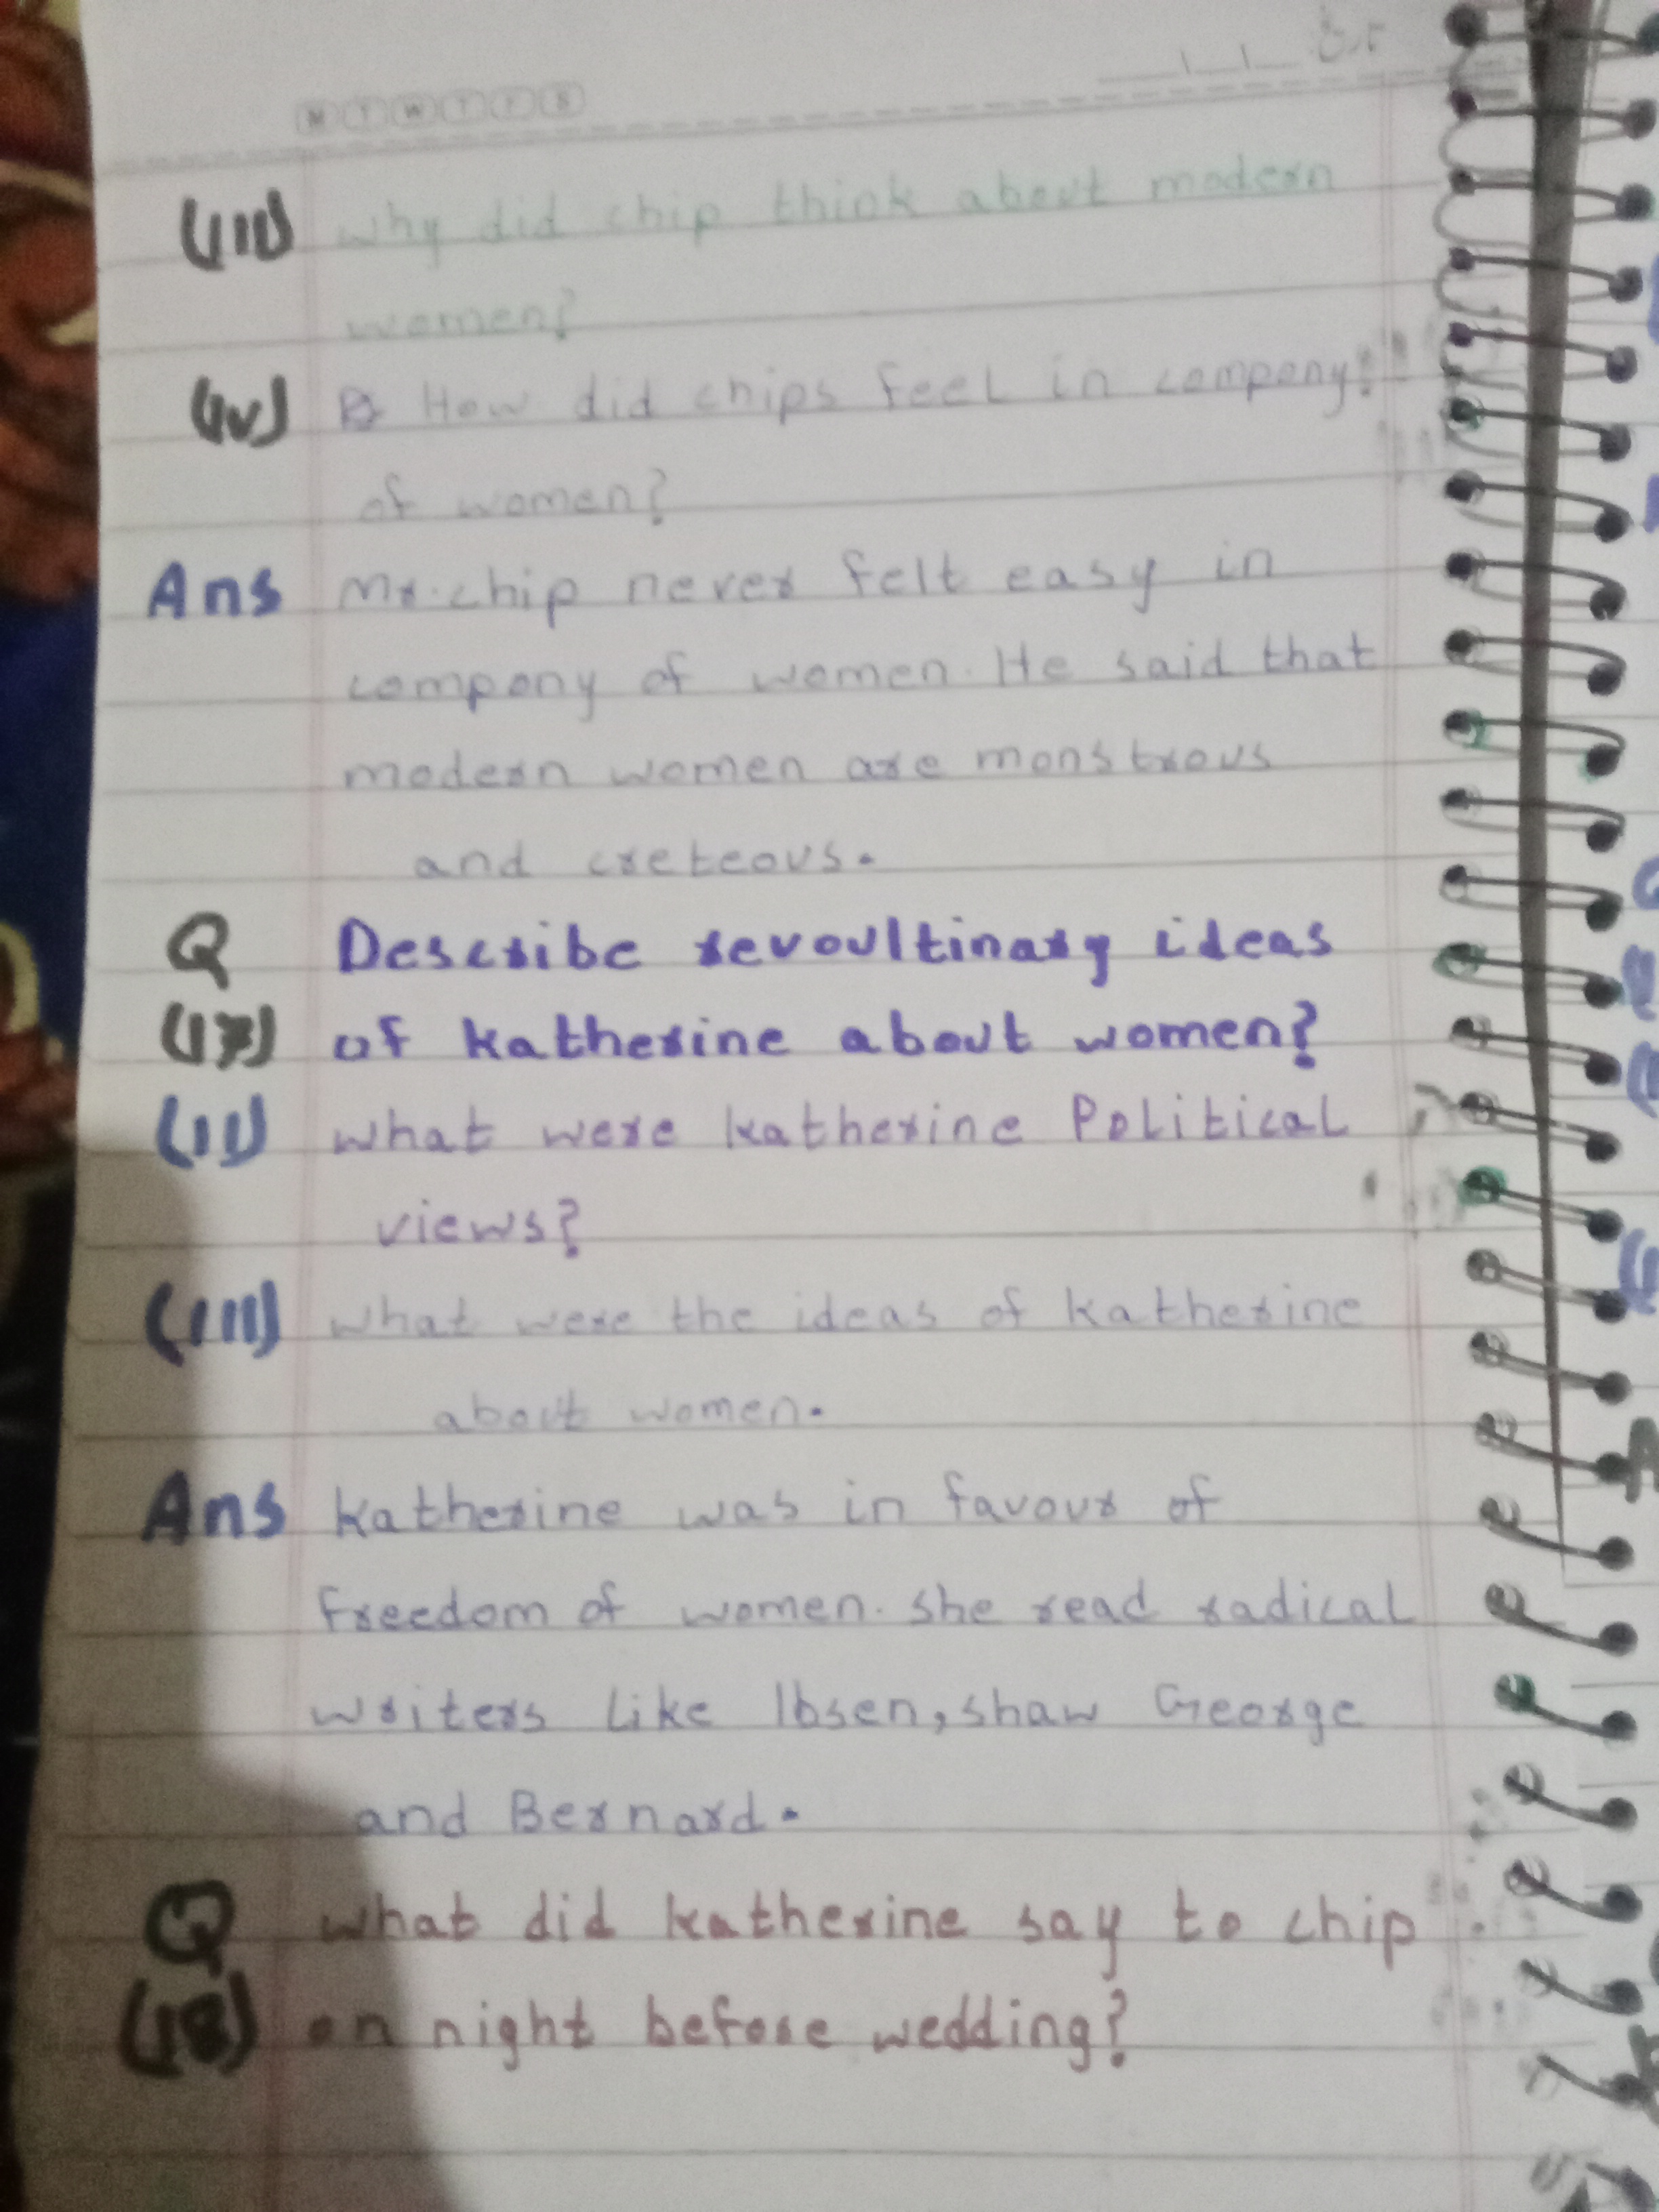 M T W T F S
(iii) Why did chip think about modern
women?
(iv) How did chips feel in company
of women?
Ans Mr.chip never felt easy in
company of women. He said that
modern women are monstrous
and creteous.
Q Describe revoultinary ideas
(17) of katherine about women?
(ii) what were katherine Political
views?
(iii) what were the ideas of katherine
about women.
Ans katherine was in favour of
freedom of women. she read radical
writers like Ibsen, shaw George
and Bernard.
Q what did katherine say to chip
(18) on night before wedding?